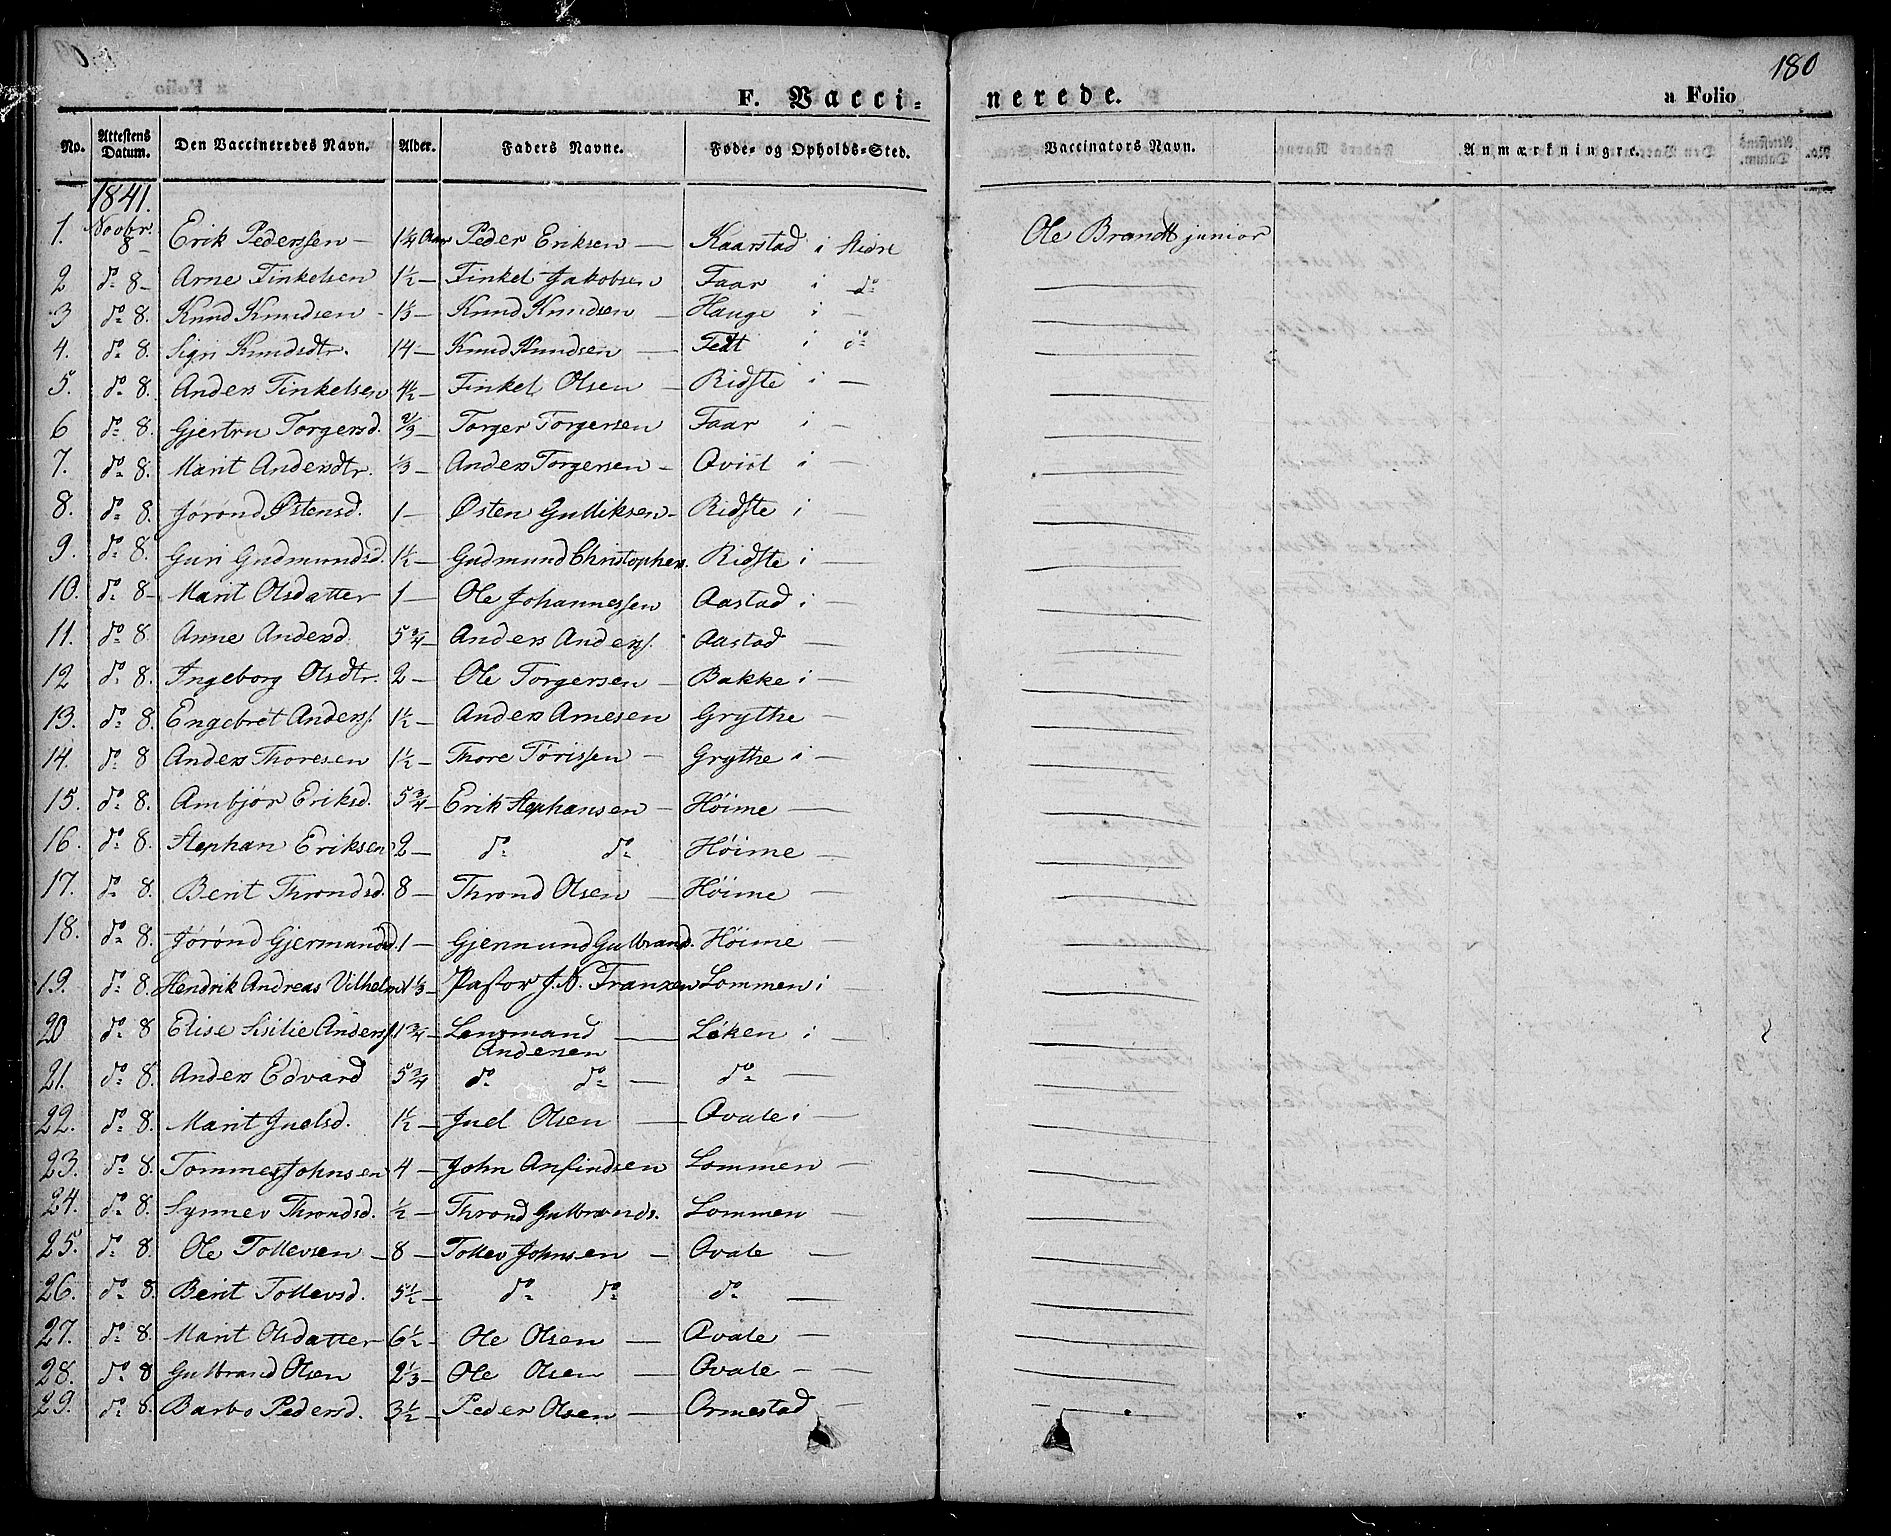 180
F. Vacci- nerede. a Folio
No. Attestens Datum. Den Vaccineredes Navn. Alder. Faders Navne. Føde- og Opholds-Sted. Vaccinators Navn. Anmærkningre.
1841.
1. Novbr. 8 - Erik Pederssen - 1¼ Aar Peder Eriksen - Kaarstad i Slidre Ole Brandt junior
2 do 8 - Arne Finkelsen 1½ - Finkel Jakobsen Faar i do
3 do 8. Knud Knudsen - 1⅓ - Knud Knudsen - Hauge i -
4. do 8. Sigri Knudsdtr. 14 - Knud Knudsen - Fedt i do
5. do 8. Anders Finkelsen 4½ - Finkel Olsen - Ridste i -
6 do 8. Gjertru Torgersd. ⅔ - Torger Torgersen Faar i -
7. do 8. Marit Andersdtr. ⅓ - Anders Torgersen - Qvist i -
8. do 8. Jørønd Østensd. 1 - Østen Gulliksen - Ridste i -
9. do 8. Guri Gudmundsd. 1½ - Gudmund Christophers. Ridste i -
10. do 8 - Marit Olsdatter 1 - Ole Johannessen Aastad i -
11. do 8. Anne Andersd. 5¾ - Anders Anderss. Aastad -
12 do 8. Ingeborg Olsdtr. 2 - Ole Torgersen - Bakke i -
13. do 8. Engebret Anderss. 1½ - Anders Arnesen Grythe -
14. do 8 Anders Thoresen 1½ - Thore Tørissen - Grythe i -
15. do 8. Ambjør Eriksd. 5¾ - Erik Stephansen - Høime -
16. do 8. Stephan Eriksen 2 - do do Høime -
17. do 8. Berit Throndsd. 8 - Thrond Olsen - Høime -
18. do 8. Jørønd Gjermundsd. 1 - Gjermund Gulbrands. Høime -
19. do 8. Hendrik Andreas Vilhelm 1⅓ - Pastor J. N. Franzen Lommen i -
20 do 8 Elise Sisilie Anderss. 1¾ - Lensmand - Løken i -
Andersen
21. do 8. Anders Edvard 5¾ do do - do -
22. do 8. Marit Juelsd. 1½ - Juel Olsen - Qvale i -
23. do 8. Tommes Johnsen 4 - John Anfindsen Lommen -
24. do 8. Synnev Throndsd. ½ - Thrond Gulbrands. Lommen -
25. do 8. Ole Tollevsen - 8 - Tollev Johnsen - Qvale -
26. do 8. Berit Tollevsd. 5½ - do do do -
27. do 8. Marit Olsdatter 6½ - Ole Olsen - Qvale -
28. do 8 Gulbrand Olsen 2⅓ - Ole Olsen - Qvale -
29. do 8. Barbo Pedersd. 3½ - Peder Olsen - Ormestad -